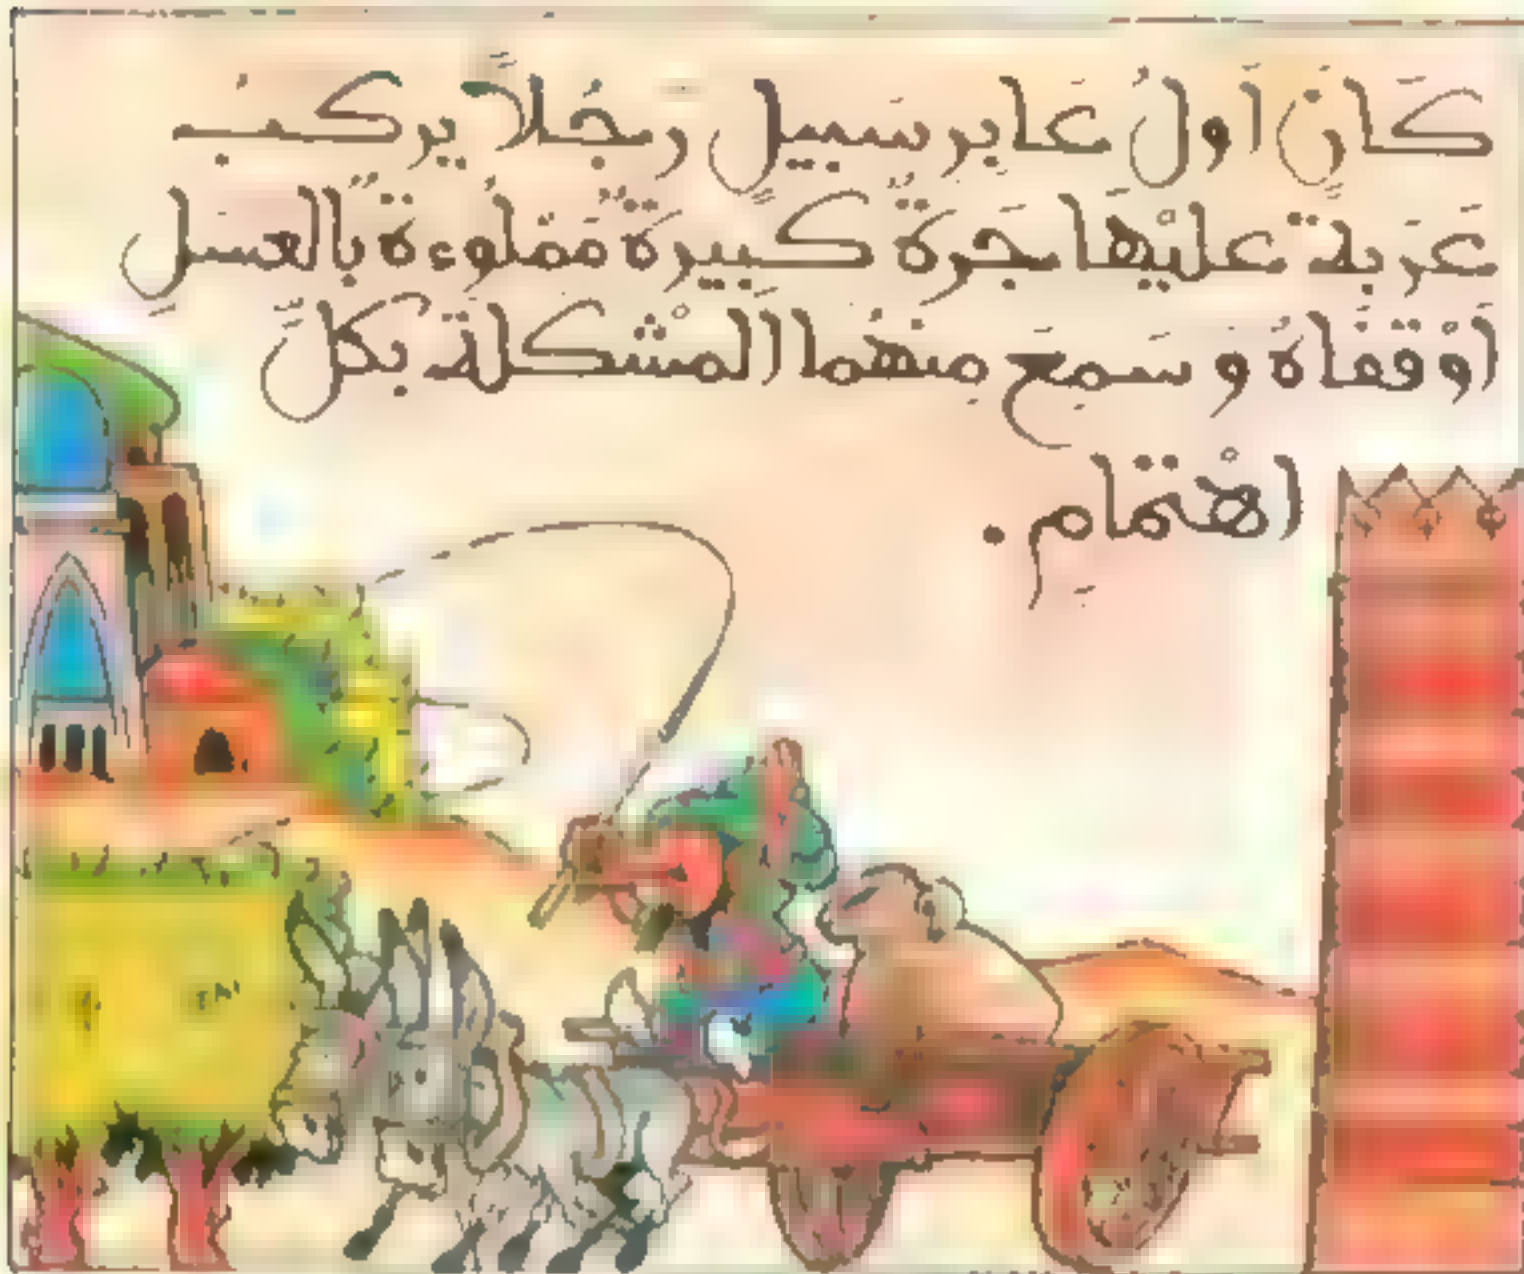 كَانَ أَولُ عَابِرِ سَبِيلٍ رَجُلاً يركبُ
عَرَبةً عليْهَا جَرةٌ كَبِيرَةٌ مَمْلُوءةٌ بالعسَلِ
أوْقفَاهُ وسَمِعَ مِنهُما المشْكلةَ بكلِّ
اهْتمَامٍ.